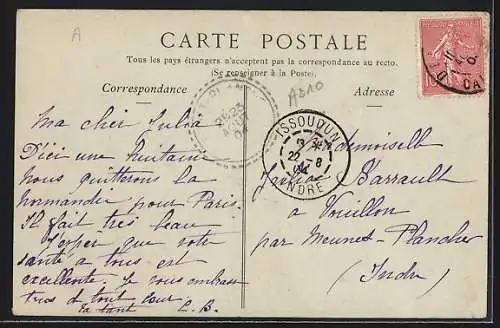 A
CARTE POSTALE
Tous les pays étrangers n'acceptent pas la correspondance au recto.
(Se renseigner à la Poste).
Correspondance
Adresse
A310
Ma cher Julia
D'ici une huitaine
nous quitterons la
normandie pour Paris.
Il fait très beau
J'espère que votre
santé a tous est
excellente. Je vous embrasse
tres d tout cœur
ta tant C. B.
ISSOUDUN
22 8
04
INDRE
Mademoiselle
Julia Barrault
a Vouillon
par Meunet-Planches
(Indre)